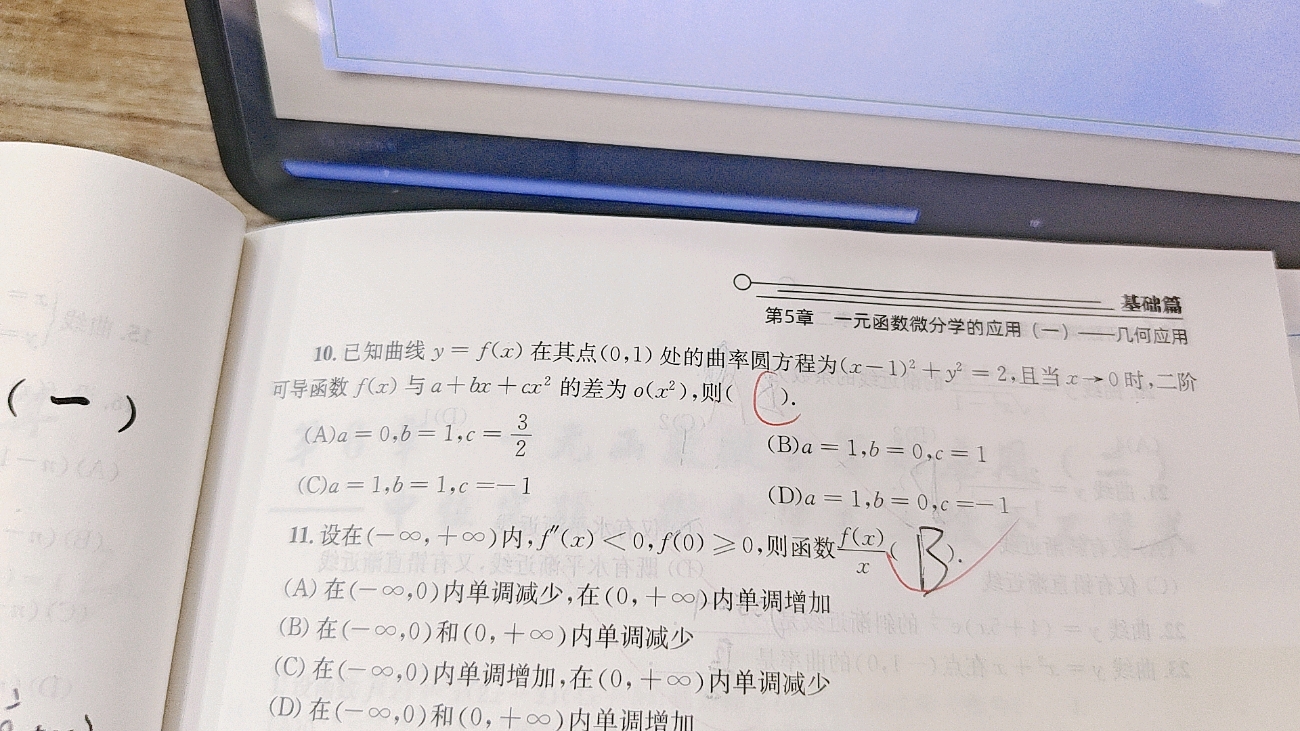 基础篇
第5章 一元函数微分学的应用（一）——几何应用
10. 已知曲线 y = f(x) 在其点(0,1) 处的曲率圆方程为(x－1)² + y² = 2,且当 x → 0 时,二阶
可导函数 f(x) 与 a + bx + cx² 的差为 o(x²),则( ).
(A)a = 0,b = 1,c = 3/2
(B)a = 1,b = 0,c = 1
(C)a = 1,b = 1,c =－1
(D)a = 1,b = 0,c =－1
11. 设在(－∞,+∞)内,f″(x) < 0,f(0) ≥ 0,则函数 f(x)/x ( B ).
(A) 在(－∞,0)内单调减少,在(0,+∞)内单调增加
(B) 在(－∞,0)和(0,+∞)内单调减少
(C) 在(－∞,0)内单调增加,在(0,+∞)内单调减少
(D) 在(－∞,0)和(0,+∞)内单调增加
(一)